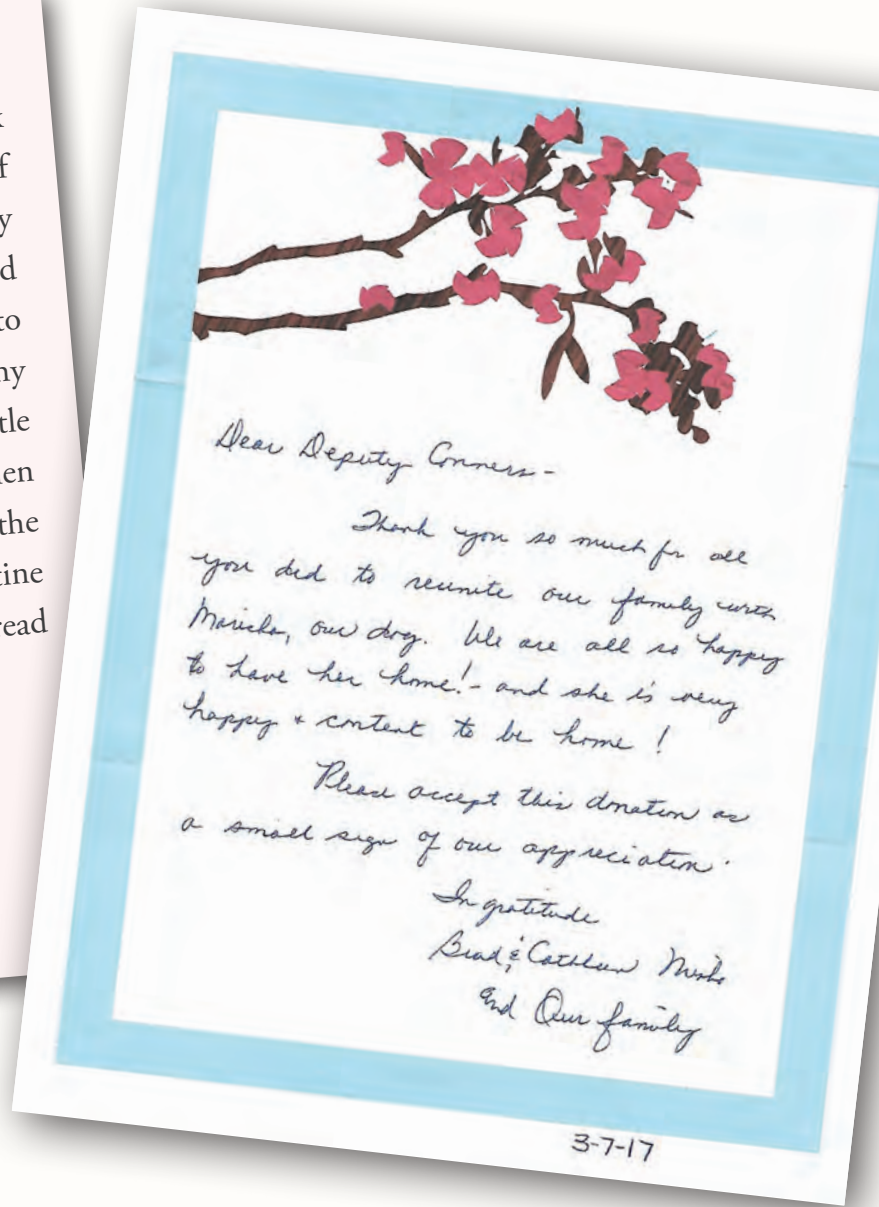 f
y
d
to
ny
tle
en
the
tine
read
Dear Deputy Conners-
Thank you so much for all
you did to reunite our family with
our dog. We are all so happy
to have her home!- and she is very
happy + content to be home!
Please accept this donation as
a small sign of our appreciation.
In gratitude
Brad & Cathleen
and Our family
3-7-17